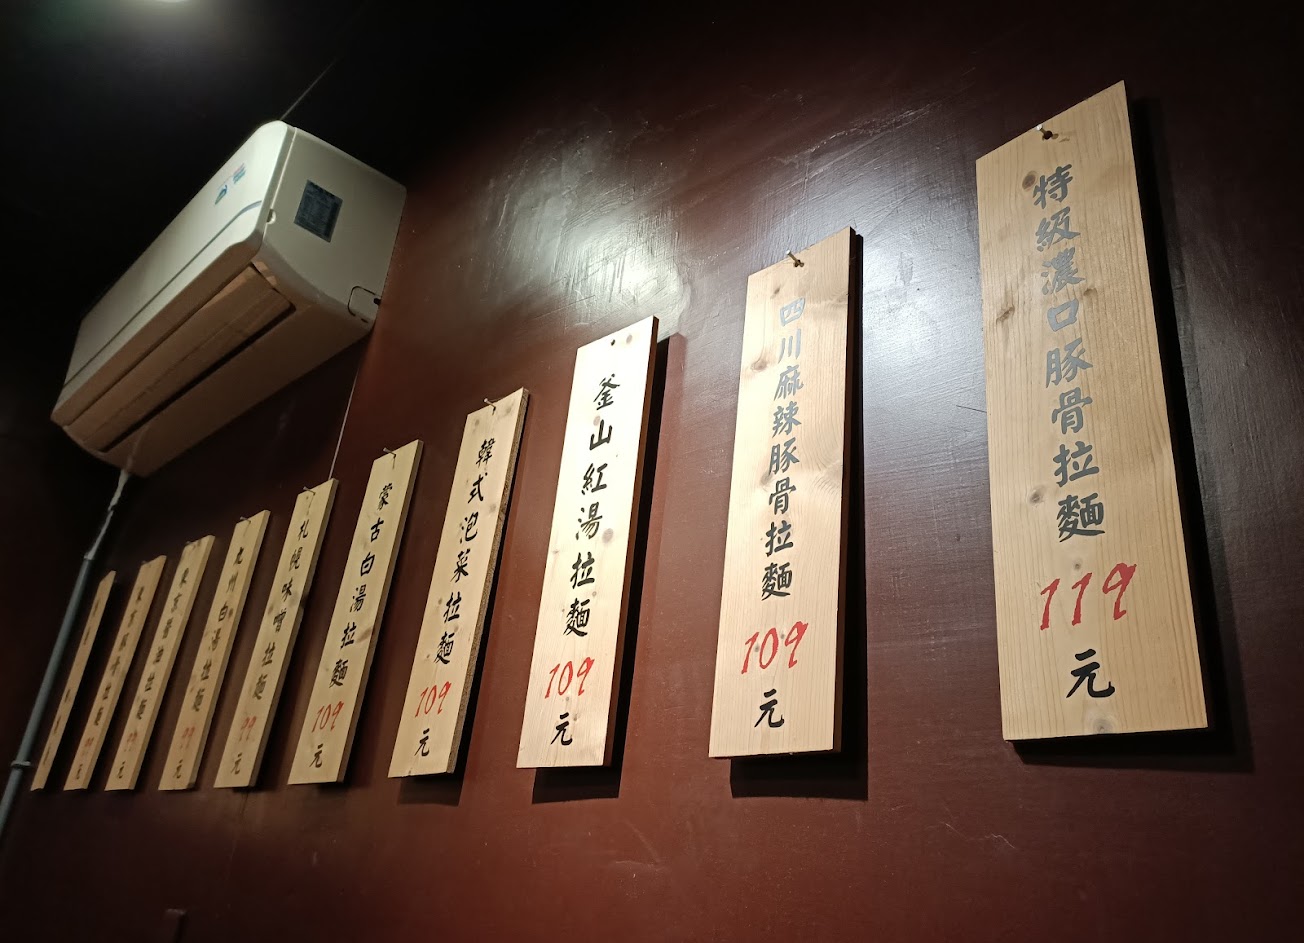 特級濃口豚骨拉麵
119
元
四川麻辣豚骨拉麵
109
元
釜山紅湯拉麵
109
元
韓式泡菜拉麵
109
元
蒙古白湯拉麵
109
元
札幌味噌拉麵
99
元
九州白湯拉麵
99
元
東京醬油拉麵
99
元
東京豚骨拉麵
99
元